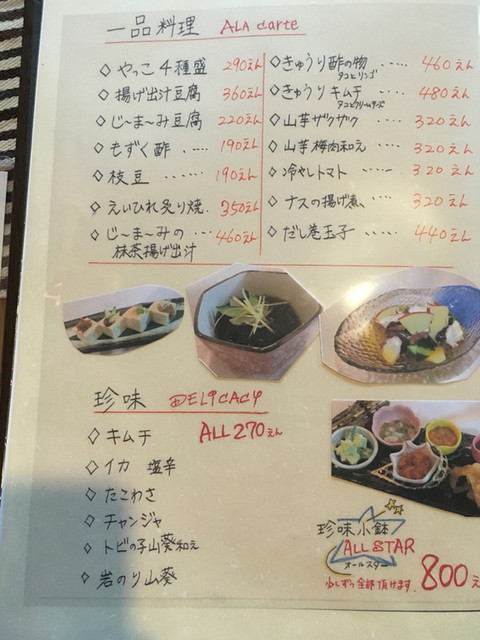 一品料理 ALA carte
◇ やっこ4種盛 290えん
◇ 揚げ出汁豆腐 360えん
◇ じ〜ま〜み豆腐 220えん
◇ もずく酢 ‥‥ 190えん
◇ 枝豆 ‥‥‥ 190えん
◇ えいひれ炙り焼. 350えん
◇ じ〜ま〜みの 460えん
抹茶揚げ出汁
◇ きゅうり酢の物 ‥‥ 460えん
タコとリンゴ
◇ きゅうりキムチ ‥‥ 480えん
タコとクリームチーズ
◇ 山芋ザクザク ‥‥ 320えん
◇ 山芋梅肉和え ‥‥ 320えん
◇ 冷やしトマト ‥‥ 320えん
◇ ナスの揚げ煮 ‥‥ 320えん
◇ だし巻玉子 ‥‥ 440えん
珍味 DELICACY
ALL 270えん
◇ キムチ
◇ イカ 塩辛
◇ たこわさ
◇ チャンジャ
◇ トビの子山葵和え
◇ 岩のり山葵
珍味小鉢
ALL STAR
オールスター
少しずつ全部頂けます. 800え